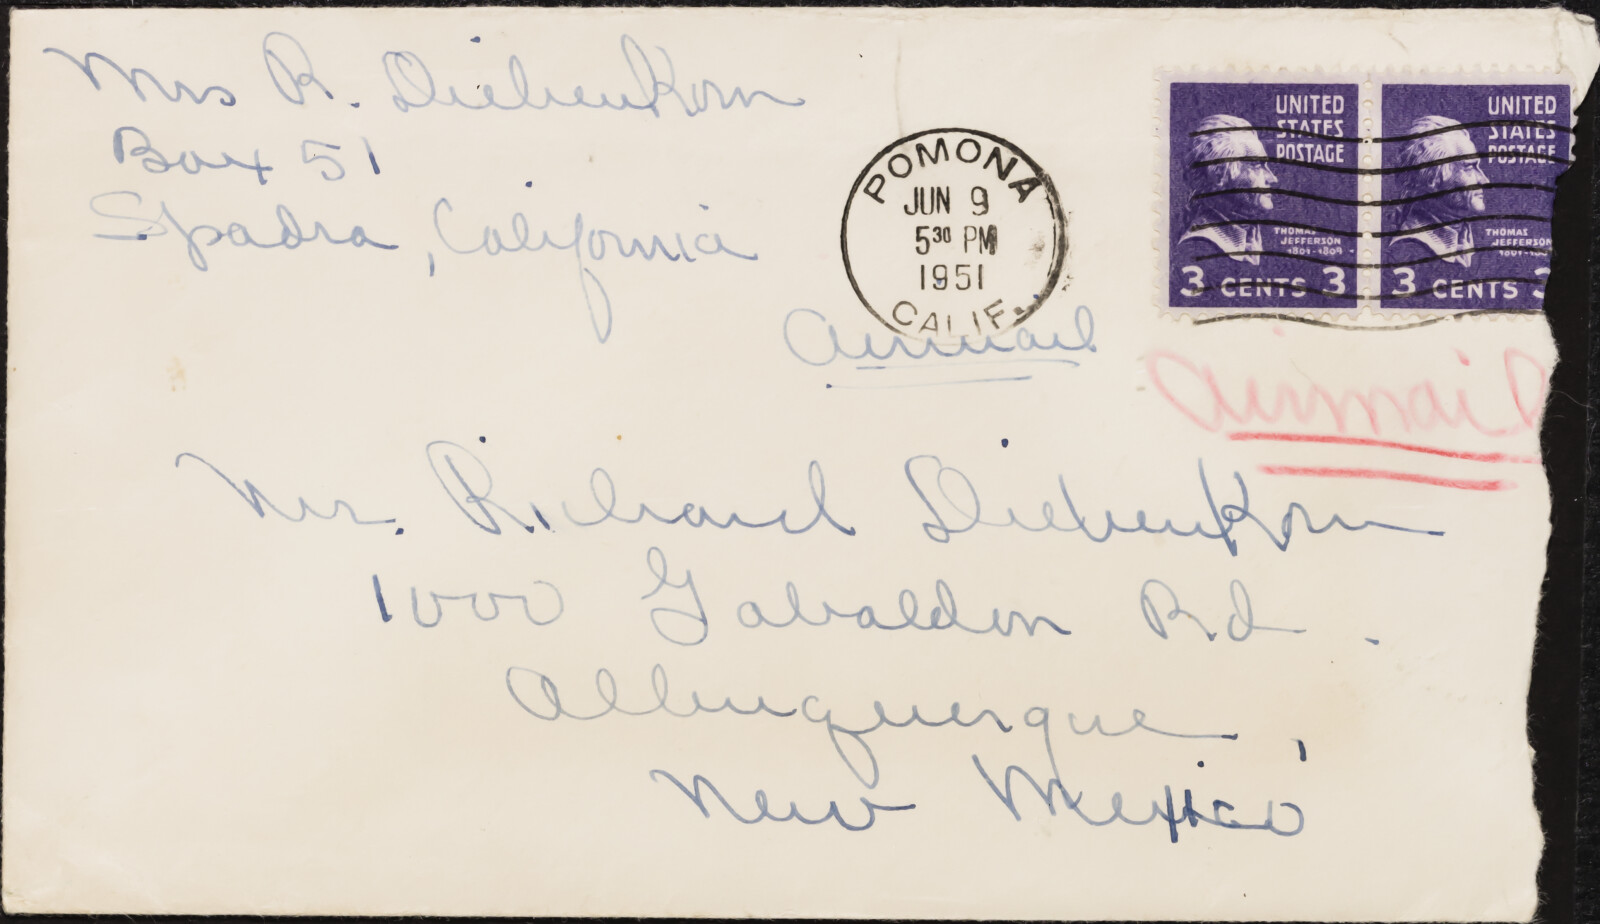 Mrs R. Diebenkorn
Box 51
Spadra, California
POMONA
JUN 9
5 30 PM
1951
CALIF.
UNITED
STATES
POSTAGE
THOMAS
JEFFERSON
1801-1809
3 CENTS 3
UNITED
STATES
POSTAGE
THOMAS
JEFFERSON
3 CENTS 3
Airmail
Airmail
Mr. Richard Diebenkorn
1000 Gabaldon Rd.
Albuquerque,
New Mexico